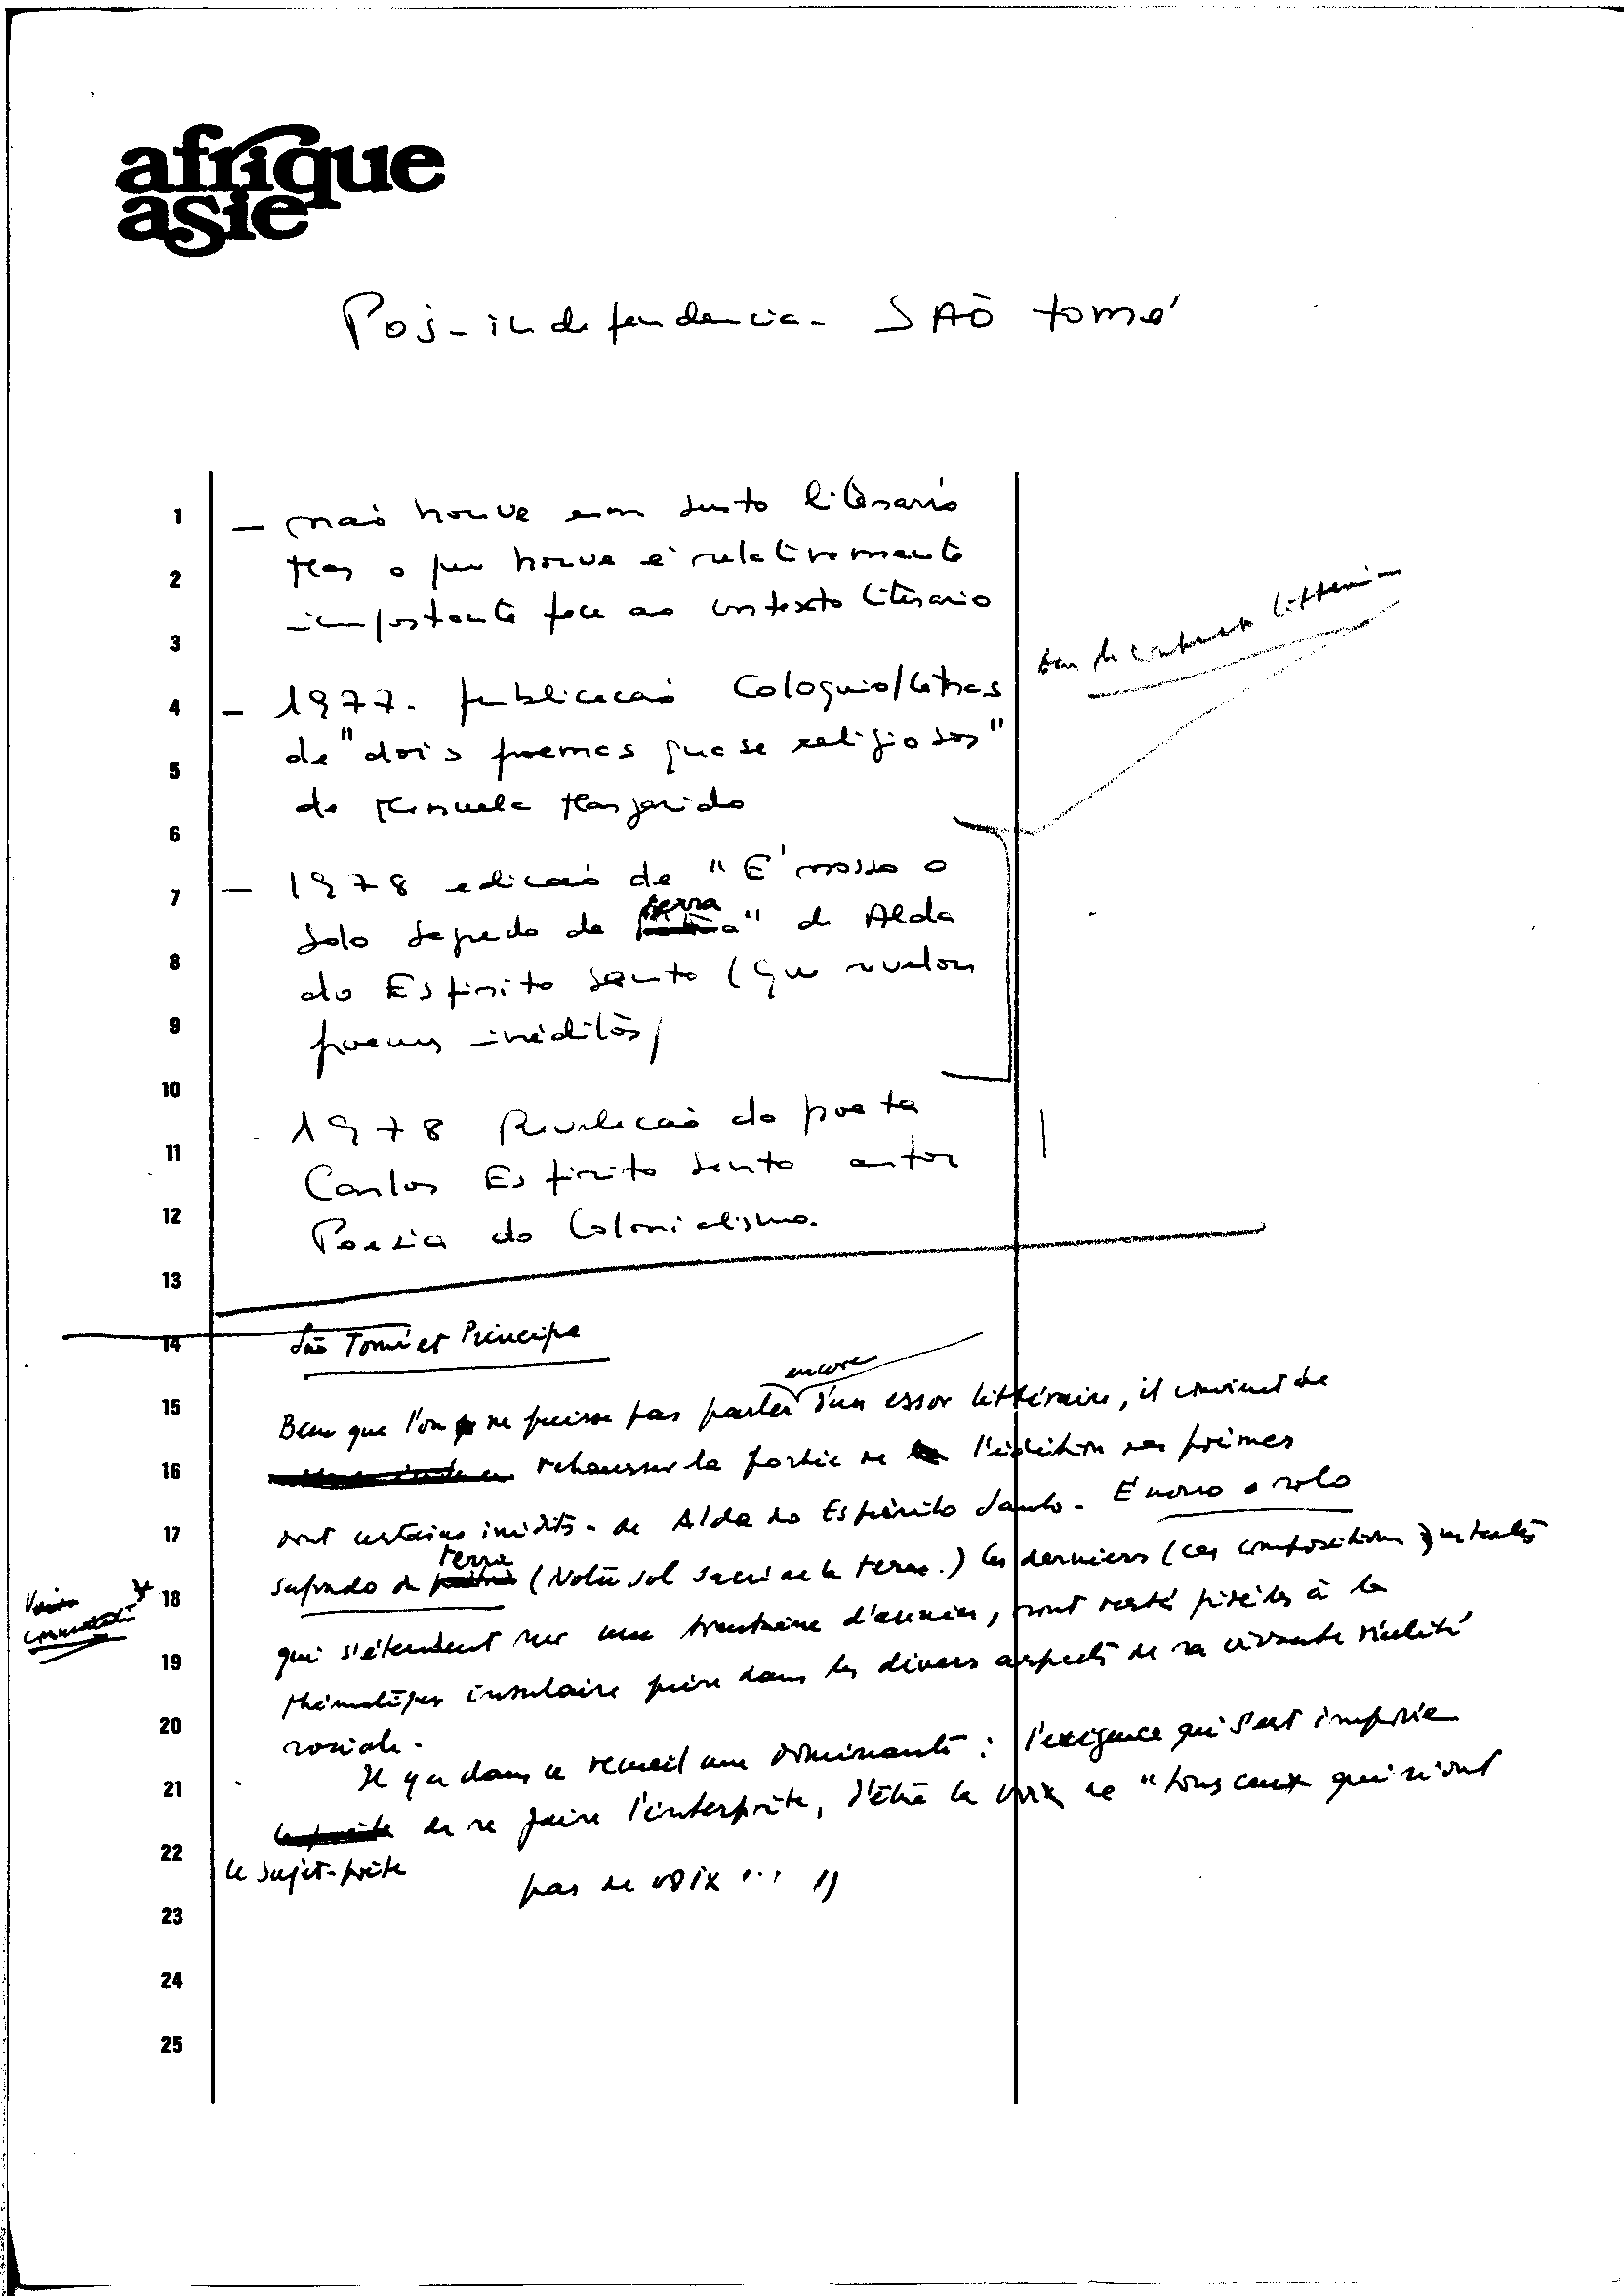 afrique
asie
Pós-independencia - SAÕ tomé
1
2
3
4
5
6
7
8
9
10
11
12
13
14
15
16
17
18
19
20
21
22
23
24
25
— não houve um surto literario
Mas o que houve é relativamente
importante face ao contexto literario
— 1977 - publicação Coloquio/Letras
de "dois poemas quase religiosos"
de Manuela Margarido
— 1978 edição de "É nosso o
solo sagrado da terra" de Alda
do Espirito Santo (que revelou
poemas inéditos)
- 1978 Revelação do poeta
Carlos Espirito Santo autor
Poesia do Colonialismo.
São Tomé et Principe
encore
Bien que l'on ne puisse pas parler d'un essor littéraire, il convient de
rehausser la portée de l'édition des poèmes
dont certains inédits - de Alda do Espirito Santo - É nosso o solo
sagrado da terra (Notre sol sacré de la terre.) les derniers (ces compositions) 
qui s'étendent sur une trentaine d'années, sont resté fidèles à la
thématique insulaire puisée dans les divers aspects de sa vivante réalité
sociale.
Il y a dans ce recueil une dominante : l'exigence qui s'est imposée
de se faire l'interprète, d'être la voix de "tous ceux qui n'ont
le sujet-poète
pas de voix ... "